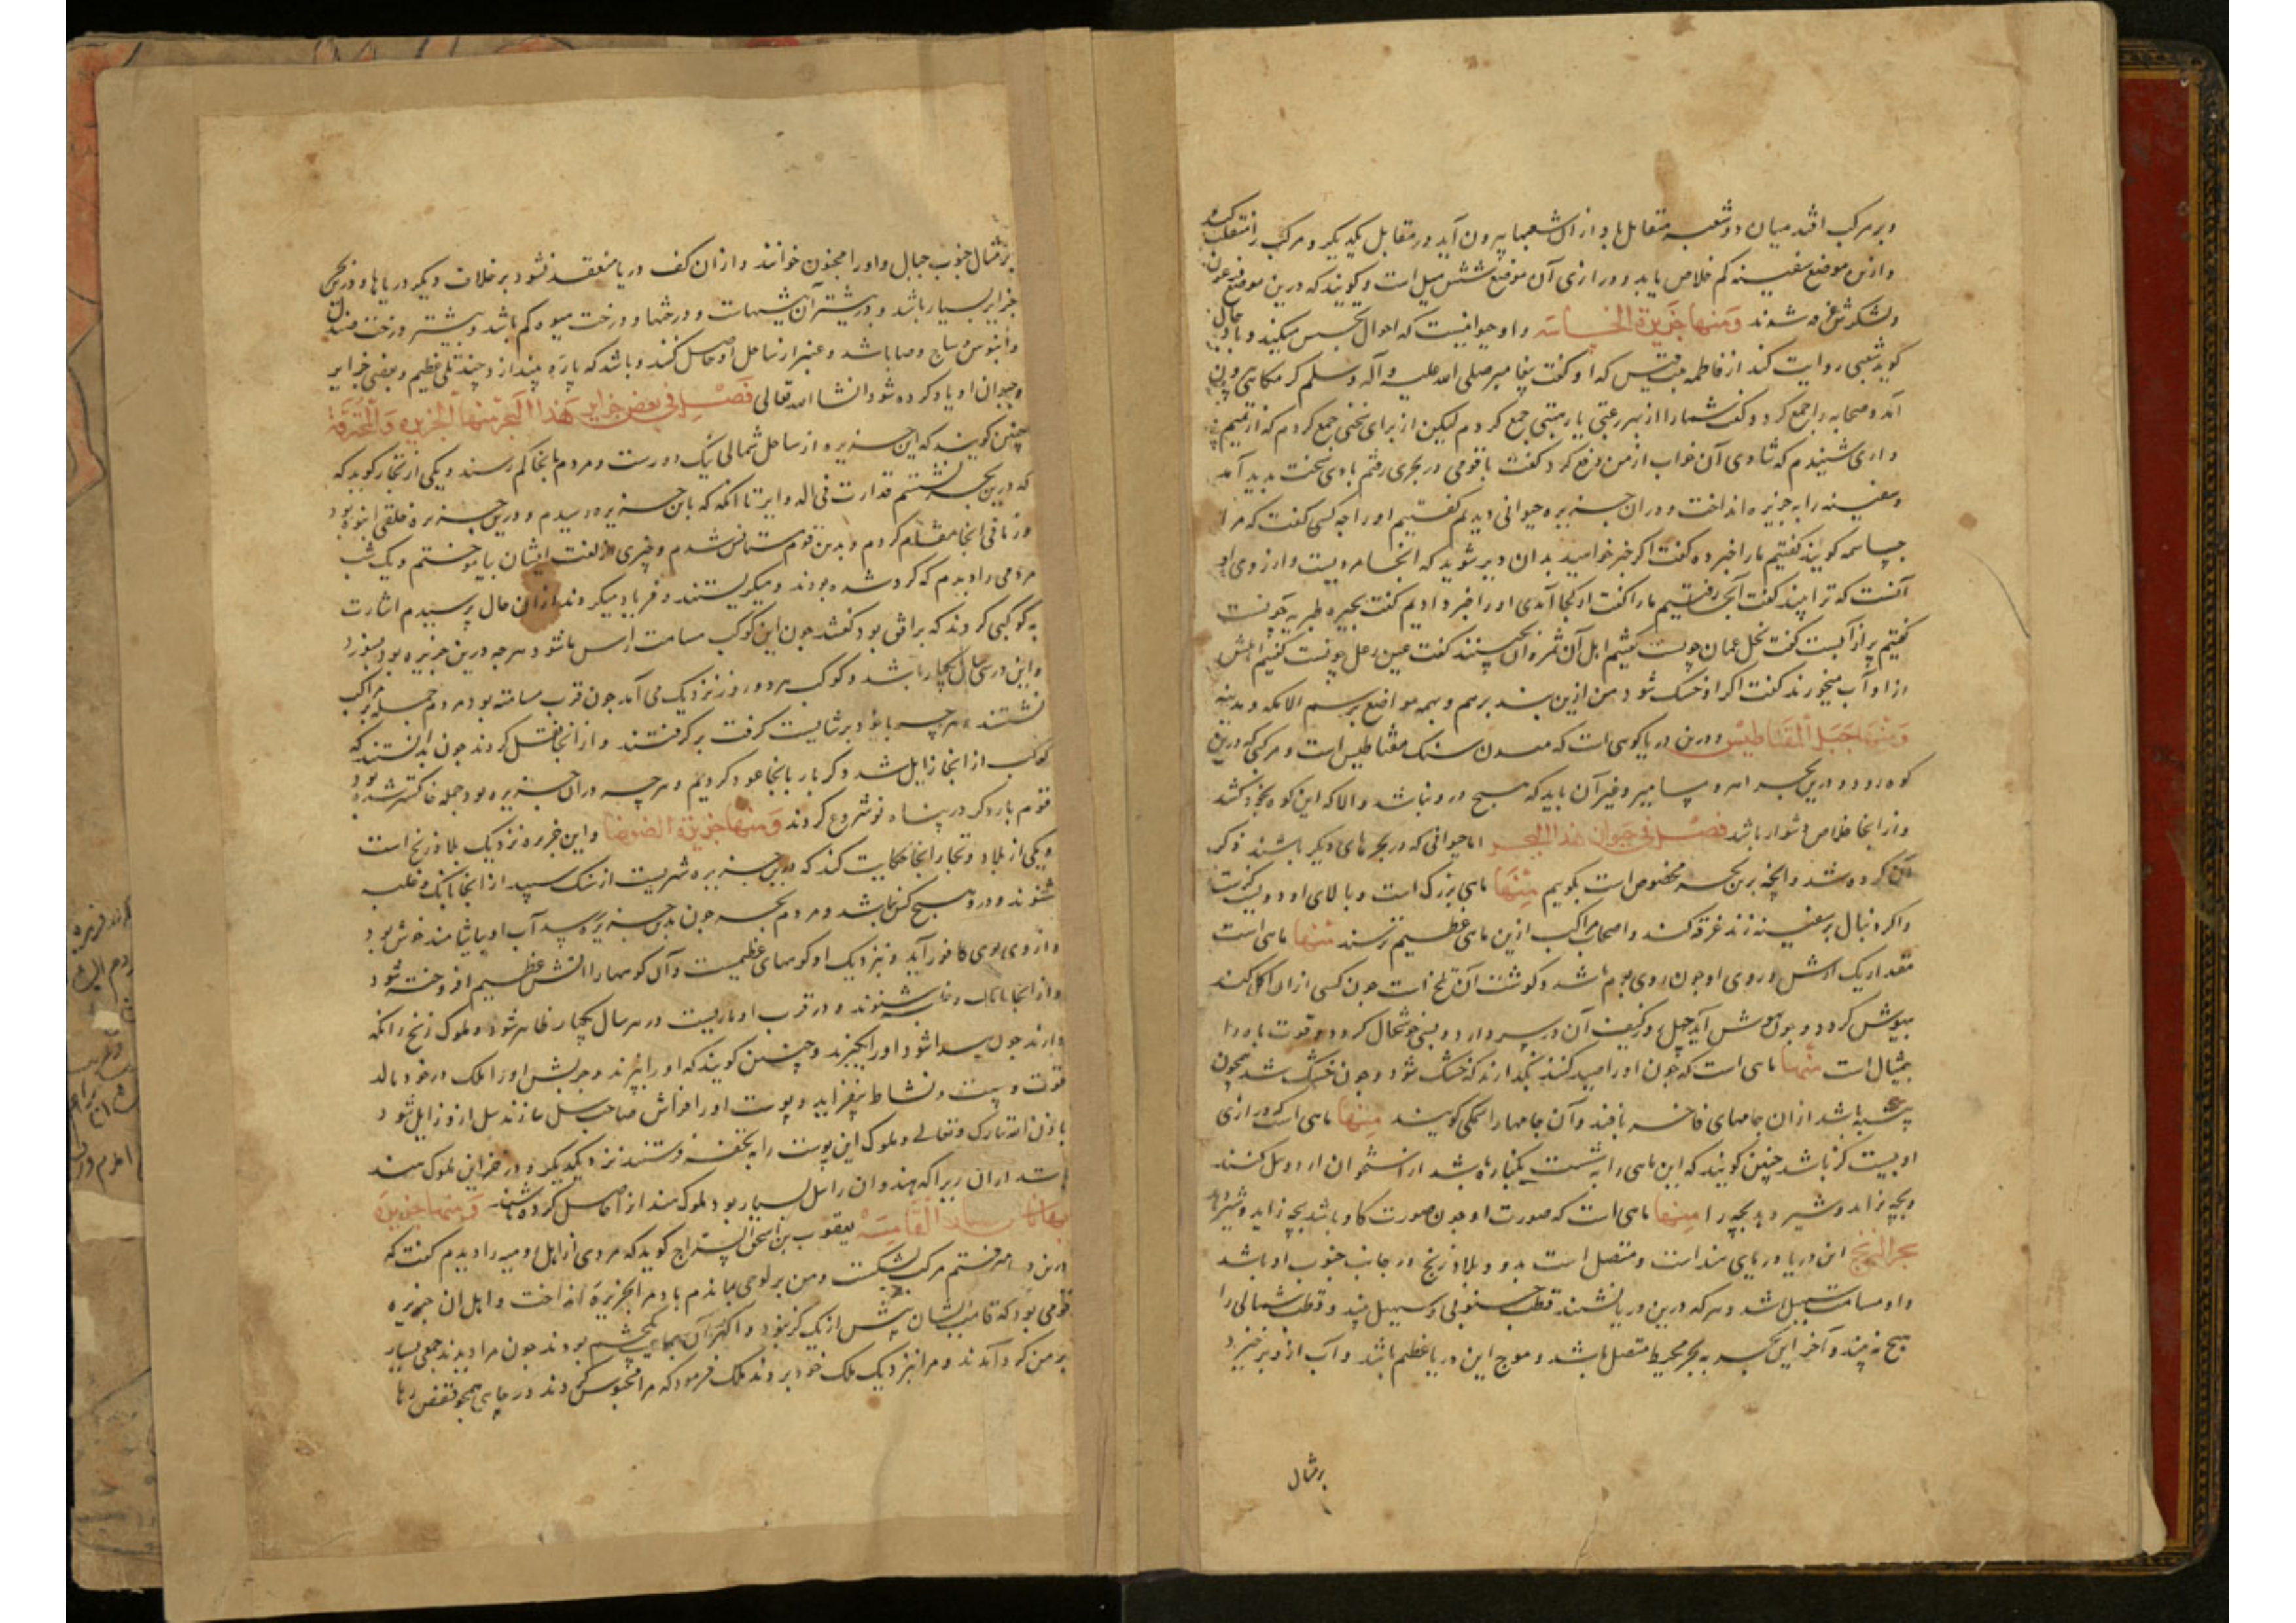 و بر مرکب افتد میان دو شعبه متقابل باد از آن شعبها بیرون آید در مقابل یکدیگر و مرکب را منقلب کند
و ازین موضع سفینه کم خلاص یابد و درازی آن موضع شش میل است و گویند که درین موضع فرعون
و لشکرش غرقه شدند ومنها جزیرة الجساسه و او حیوانیست که احوال تجسس میکند و با دجال
گوید شعبی روایت کند از فاطمه بنت قیس که او گفت پیغامبر صلی الله علیه و آله و سلم
آمد و صحابه را جمع کرد و گفت شما را از بهر رغبتی یا رهبتی جمع نکردم لیکن از برای سخنی جمع کردم که از تمیم
داری شنیدم که شادی آن خواب از من منع کرد گفت با قومی در بحری رفتم بادی سخت بدید آمد
و سفینه را به جزیره انداخت و در آن جزیره حیوانی دیدیم گفتیم او را چه کسی گفت که مرا
جساسه گویند گفتیم ما را خبر ده گفت اگر خبر خواهید بدان دیر شوید که آنجا مردیست و آرزوی او
آنست که ترا بیند گفت آنجا رفتیم ما را گفت از کجا آمدی او را خبر دادیم گفت بحیره طبریه چونست
گفتیم پر از آبست گفت نخل عمان چونست گفتیم اهل آن ثمره آن چینند گفت عین زغل چونست گفتیم اهلش
از او آب میخورند گفت اگر او خشک شود من ازین بند برهم و بهمه مواضع برسم الا مکه و مدینه
ومنها جبل المقناطیس و درین دریا کوهی است که معدن سنگ مقناطیس است و مرکبی که درین
کوه رود و درین بحر امر و مسامیر و غیر آن باید که هیچ درو نباشد و الا که این کوه بخود کشد
و از آنجا خلاص دشوار باشد فصل فی حیوان هذا البحر اما حیوانی که در بحرهای دیگر باشند ذکر
آن کرده شد و آنچه برین بحر مخصوص است بگوییم منها ماهی بزرگ است و بالای او دویست گزست
و اگر دنبال بر سفینه زند غرقه کند و اصحاب مراکب ازین ماهی عظیم ترسند منها ماهی است
مقدار یک ارش و روی او چون روی بوم باشد و گوشت آن تلخ است چون کسی از آن اکل کند
بیهوش گردد و چون بهوش آید
بمثال است منها ماهی است که چون او را صید کنند بگذارند که خشک شود و چون خشک شد همچون
پنبه باشد از آن جامهای فاخر بافند و آن جامها را سمکی گویند منها ماهی است که درازی
او بیست گز باشد چنین گویند که این ماهی را به شست یکبار باشد از استخوان او
و بچه زاید و شیر دهد بچه را منها ماهی است که صورت او چون صورت گاو باشد بچه زاید و شیر دهد
بحر الزنج این دریا دریای هند است و متصل است بدو و بلاد زنج در جانب جنوب او باشد
و او مسامت سهیل باشد و هر که درین دریا نشیند قطب جنوبی و سهیل بیند و قطب شمالی را
هیچ نه بیند و آخر این بحر به بحر محیط متصل باشد و موج این دریا عظیم باشد و آب از و برخیزد
بر مثال
بر مثال جنوب جبال و او را مجنون خوانند و از آن کف دریا منعقد نشود بر خلاف دیگر دریاها و درین بحر
جزایر بسیار باشد و بیشتر آن بیشهات و درختها و درخت میوه کم باشد و بیشتر درخت صندل
و آبنوس و ساج و عصا باشد و عنبر از ساحل او حاصل کنند و باشد که پاره بیندازد چند تلی عظیم و بعضی جزایر
و حیوان او یاد کرده شود انشا الله تعالی فصل فی بعض جزایر هذا البحر منها الجزیره المحترقة
چنین گویند که این جزیره از ساحل شمالی نیک دورست و مردم بآنجا کم رسند و یکی از تجار گوید که
که درین بحر نشستم قدارت فی الدوایر تا آنگه که باین جزیره رسیدم و درین جزیره خلقی انبوه بود
و زمانی آنجا مقام کردم و بدین قوم مستأنس شدم و چیزی از لغت ایشان بیاموختم و یک شب
مردمی را دیدم که گرد شده بودند و میگریستند و فریاد میکردند از آن حال پرسیدم اشارت
به کوکبی کردند که بر افق بود گفتند چون این کوکب مسامت راس ما شود هر چه درین جزیره بود بسوزد
و این در سی سال یکبار باشد و کوکب هر دو روز نزدیک می آمد چون قرب مسامته بود مردم جمله بر مراکب
نشستند و هر چه بایست برگرفت برگرفتند و از آنجا نقل کردند چون بدانستند که
کوکب از آنجا زایل شد دگر بار بآنجا عود کردیم و هر چه در آن جزیره بود جمله خاکستر شده بود
قوم بار دگر در بنیاد نو شروع کردند ومنها جزیرة الضوضا و این جزیره نزدیک بلاد زنج است
و یکی از بلاد و تجار آنجا حکایت کند که درین جزیره شهریست از سنگ سپید از آنجا بانگ و غلبه
شنوند و درو هیچ کس نباشد و مردم بحر چون بدین جزیره رسید آب او بیاشامند خوش بود
و از وی بوی کافور آید و نزدیک او کوههای عظیمست و آن کوهها را آتش عظیم افروخته شود
و از آنجا بانگ و غلبه شنوند و در قرب او ماریست در هر سال یکبار ظاهر شود و ملوک زنج رانگه
دارند چون پیدا شود او را گیرند و چنین گویند که او را بپزند و چربش او را ملک در خود مالد
قوت و هیبت و نشاط بیفزاید و پوست او را فراش صاحب سل سازند سل ازو زایل شود
باذن الله تبارک و تعالی و ملوک این پوست را به تحفه فرستند نزد یکدیگر و در خزاین ملوک هند
باشد از آن زیرا که هندوان را سل بسیار بود ملوک هند از آن حاصل کرده باشند ومنها جزیرة
القامة یعقوب بن اسحق السراج گوید که مردی از اهل رومیه را دیدم گفت که
درین دریا رفتم مرکب بشکست و من بر لوحی بماندم باد مرا بجزیره انداخت و اهل آن جزیره
قومی بود که قامت ایشان بیش از یک گز نبود و اکثر آن جماعت یکچشم بودند چون مرا دیدند جمعی بسیار
بر من گرد آمدند و مرا نزدیک ملک خود بردند ملک فرمود که مرا محبوس کردند در جایی همچو قفص رها